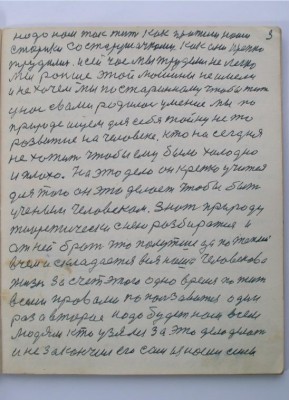 надо нам так жить как прежили наши
старики со старушачками. как они крепко
трудились. и сейчас мы трудимся не легко
мы раньше этой машины не имели
и не хочем мы по старинному чтобы жить
у нас с вами родилося умение мы по
природе ищем для себя тайну не то
развитие на человека, кто на сегодня
не хотит чтобы ему было холодно
и плохо. На это дело он крепко учится
для того он это делает чтобы быть
ученым человеком. Знать природу
теоретически с нею разбиратся и
от ней брать что получше да потеплей
в чем и складается вся наша человекова
жизнь за счет этого одно время пожить
всеми правами попользоватся один
раз а второе надо будет нам всем
людям кто узялся за это дело делать
и не закончил его сам из носит силы
3